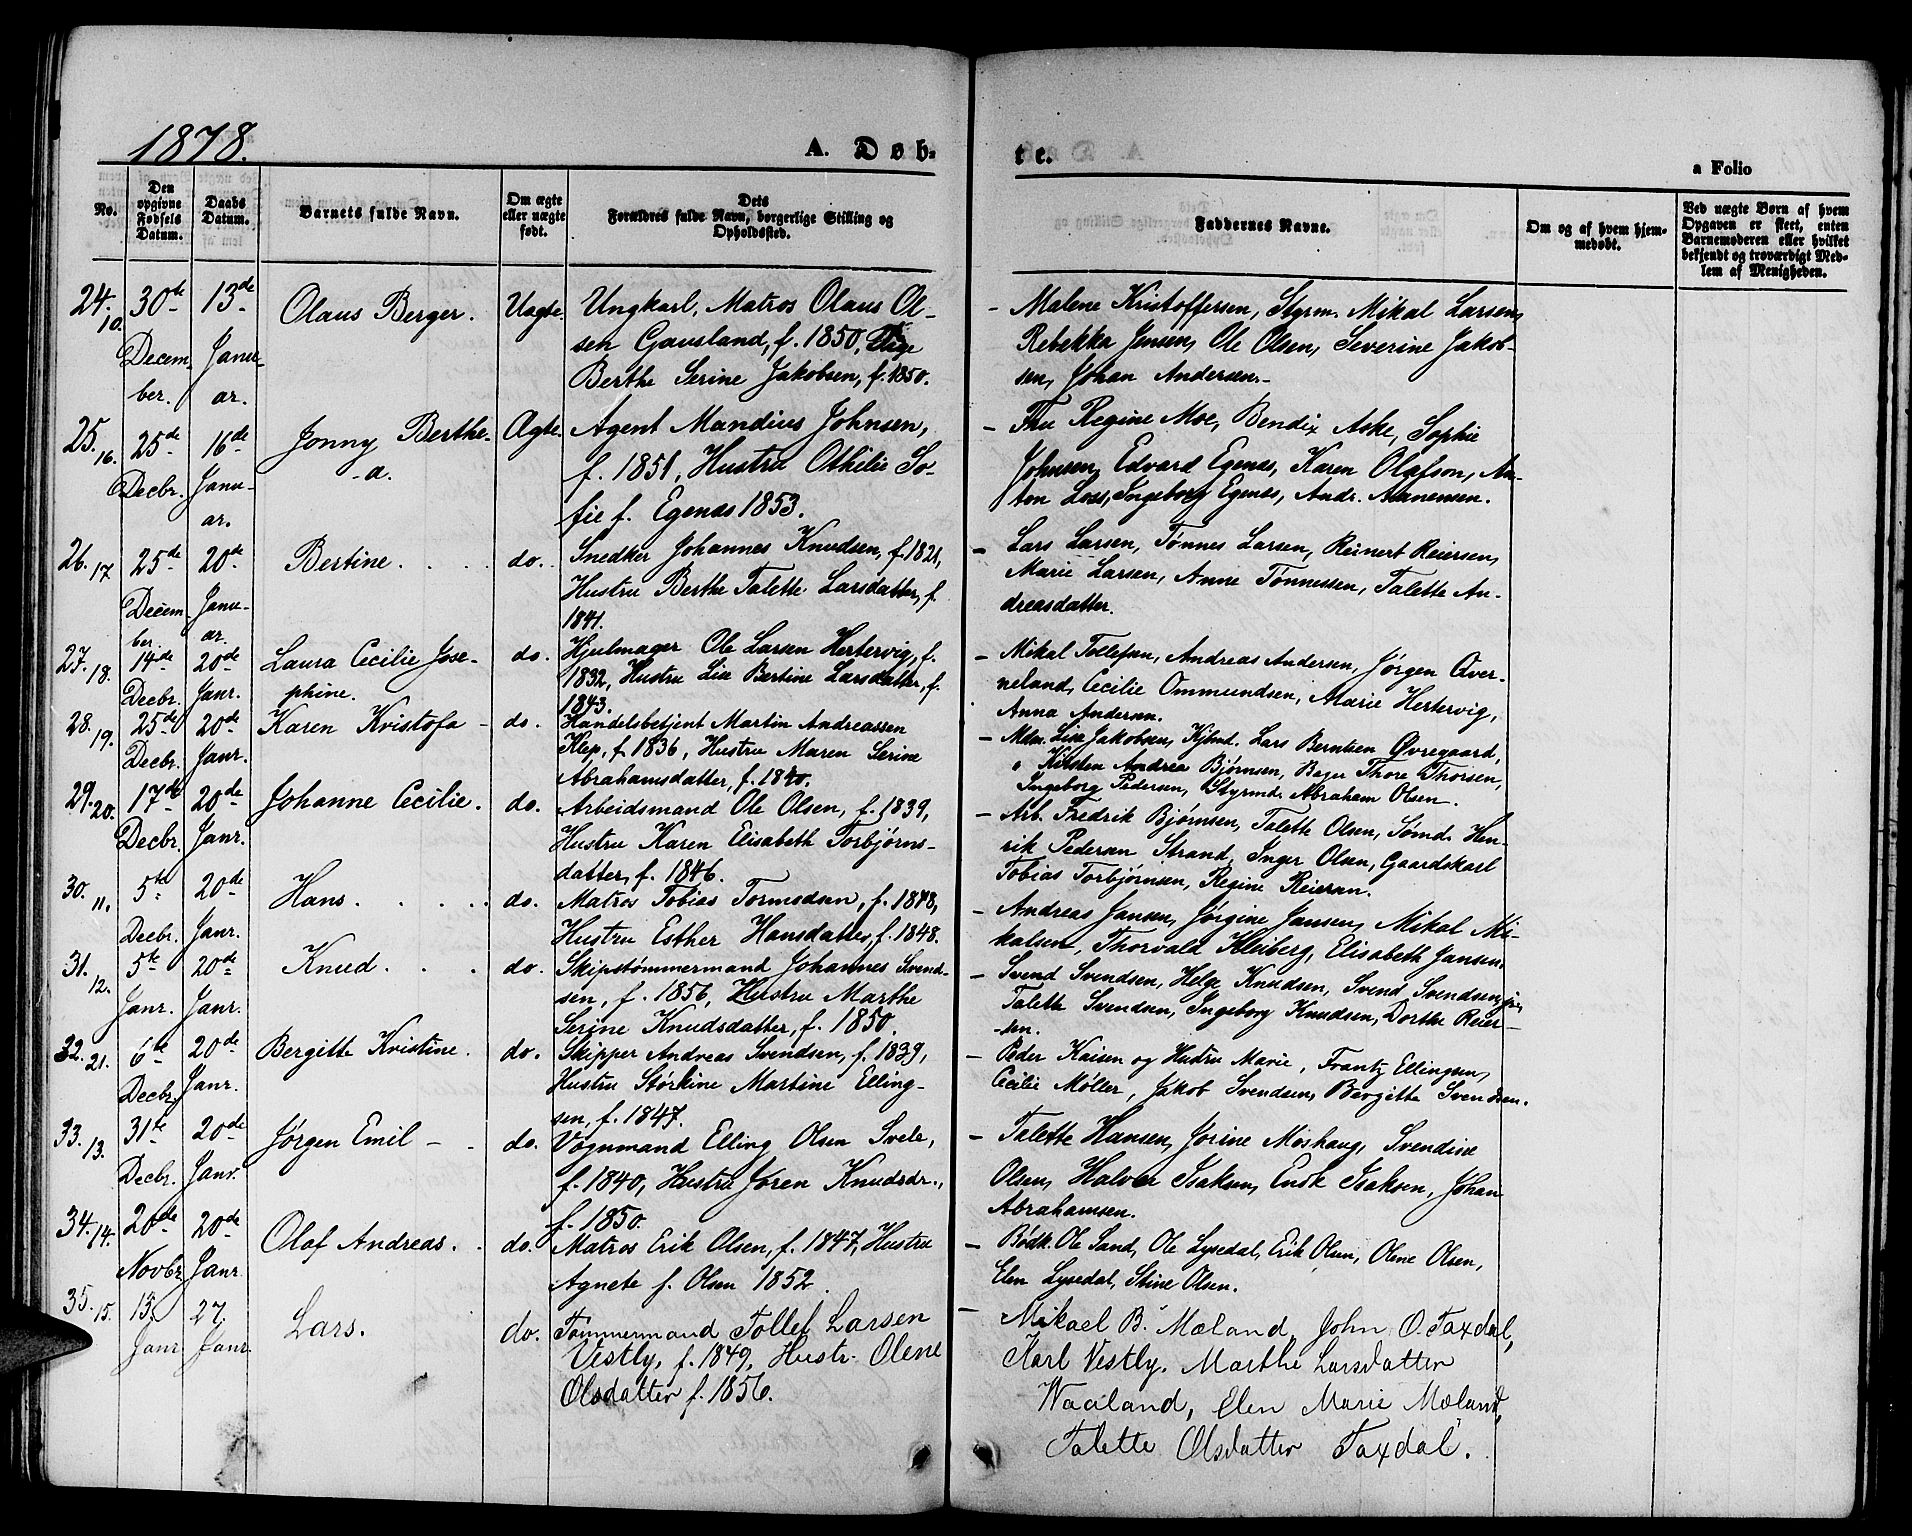 1878.
A. Døb-
te.
a Folio
No.
Den opgivne Fødsels Datum.
Daabs Datum.
Barnets fulde Navn.
Om ægte eller uægte født.
Dets Forældres fulde Navn, borgerlige Stilling og Opholdssted.
Faddernes Navne.
Om og af hvem hjemmedøbt.
Ved uægte Børn af hvem Opgaven er skeet, enten Barnemoderen eller hvilket bekjendt og troværdigt Medlem af Menigheden.
24. 10. 30de Decem- ber. 13de Janu- ar. Olaus Berger. Uægte. Ungkarl, Matros Olaus Ol-
sen Gausland, f. 1850, Pige
Berthe Serine Jakobsen, f. 1850.
- Malene Kristoffersen, Styrm. Mikal Larsen,
Rebekka Jensen, Ole Olsen, Severine Jakob-
sen, Johan Andersen.-
25. 16. 25de Decbr. 16de Janu- ar. Jonny Berthe-
-a. Ægte. Agent Mandius Johnsen,
f. 1851, Hustru Othilie So-
fie f. Egenæs 1853.
- Fru Regine Moe, Bendix Aske, Sophie
Johnsen, Edvard Egenæs, Karen Olafson, An-
ton Loss, Ingeborg Egenæs, Andr. Aanensen.
26. 17. 25de Decem- ber. 20de Janu- ar. Bertine. do. Snedker Johannes Knudsen, f. 1821,
Hustru Berthe Talette Larsdatter, f.
1841.
- Lars Larsen, Tønnes Larsen, Reinert Reiersen,
Marie Larsen, Anne Tønnessen, Talette An-
dreasdatter.
27. 18. 14de Decbr. 20de Janr. Laura Cecilie Jose-
phine. do. Hjulmager Ole Larsen Hertervig, f.
1832, Hustru Lise Bertine Larsdatter, f.
1843.
- Mikal Tollefsen, Andreas Andersen, Jørgen Qver-
neland, Cecilie Ommundsen, Marie Hertervig,
Anna Andersen.
28. 19. 25de Decbr. 20de Janr. Karen Kristofa - do. Handelsbetjent Martin Andreassen
Klep, f. 1836, Hustru Maren Serine
Abrahamsdatter, f. 1840.
- Mdm. Lise Jakobsen, Kjbmd. Lars Berntsen Øvregaard,
" Kirsten Andrea Bjørnsen, Bager Thore Thorsen,
Ingeborg Pedersen, Styrmd. Abraham Olsen.
29. 20. 17de Decbr. 20de Janr. Johanne Cecilie. do. Arbeidsmand Ole Olsen, f. 1839,
Hustru Karen Elisabeth Torbjørns-
datter, f. 1846.
- Arb. Fredrik Bjørnsen, Talette Olsen, Sømd. Hen-
rik Pedersen Strand, Inger Olsen, Gaardskarl
Tobias Torbjørnsen, Regine Reiersen.
30. 11. 5te Decbr. 20de Janr. Hans. do. Matros Tobias Tormodsen, f. 1848,
Hustru Esther Hansdatter, f. 1848.
- Andreas Jansen, Jørgine Jansen, Mikal Mi-
kalsen, Thorvald Kleiberg, Elisabeth Jansen.
31. 12. 5te Janr. 20de Janr. Knud. do. Skipstømmermand Johannes Svend-
sen, f. 1856, Hustru Marthe
Serine Knudsdatter, f. 1850.
- Svend Svendsen, Helge Knudsen, Svend Svendsen jr.,
Talette Svendsen, Ingeborg Knudsen, Dorthe Reier-
-sen.
32. 21. 6te Decbr. 20de Janr. Bergitte Kristine. do. Skipper Andreas Svendsen, f. 1839,
Hustru Størkine Martine Elling-
sen, f. 1847.
- Peder Kaisen og Hustru Marie, Frantz Ellingsen,
Cecilie Møller, Jakob Svendsen, Bergitte Svendsen.
33. 13. 31te Decbr. 20de Janr. Jørgen Emil - do. Vognmand Elling Olsen Svele,
f. 1840, Hustru Joren Knudsdr.,
f. 1850.
- Talette Hansen, Jorine Moshaug, Svendine
Olsen, Halvor Isaksen, Endk Isaksen, Johan
Abrahamsen.
34. 14. 20de Novbr. 20de Janr. Olaf Andreas. do. Matros Erik Olsen, f. 1847, Hustru
Agnete f. Olsen 1852.
- Bødk. Ole Sand, Ole Lysedal, Erik Olsen, Olene Olsen,
Elen Lysedal, Stine Olsen.
35. 15. 15. Janr 27. Janr. Lars. do. Tømmermand Tollef Larsen
Vestly, f. 1849, Hustr. Olene
Olsdatter f. 1856.
- Mikael B. Mæland, John O. Taxdal,
Karl Vestly. Marthe Larsdatter
Waaland, Elen Marie Mæland,
Talette Olsdatter Taxdal.